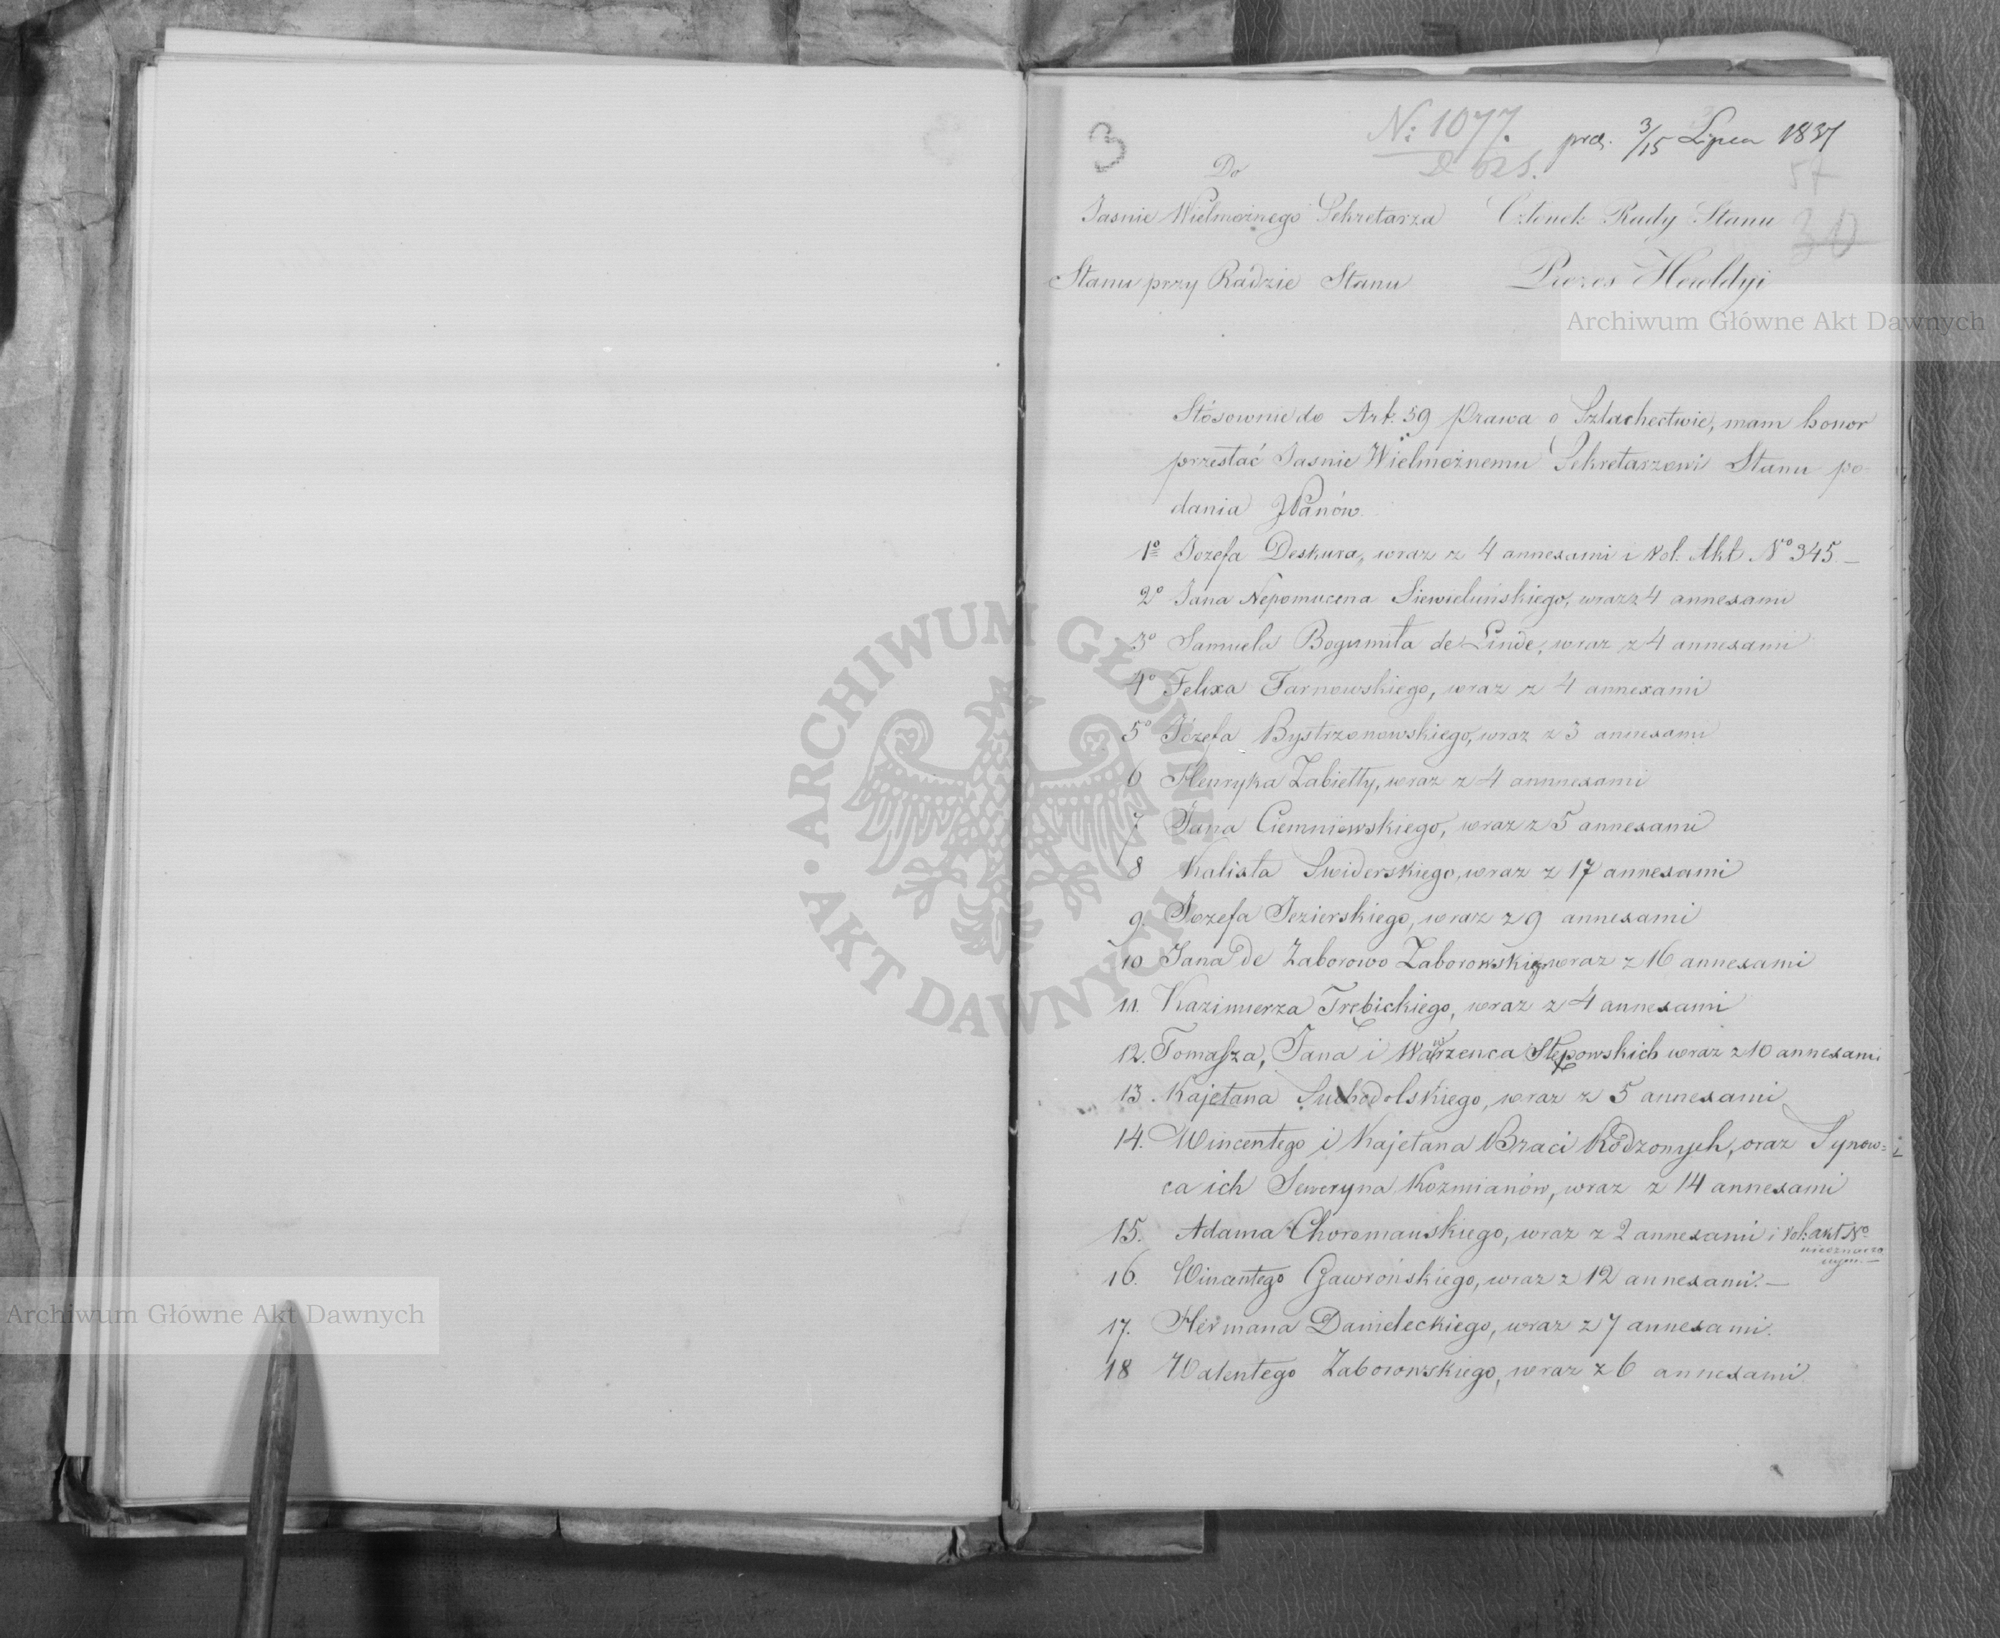 3
N: 1077.
prez. 3/15 Lipca 1837
57
30
Do
Jasnie Wielmożnego Sekretarza
Stanu przy Radzie Stanu
Członek Rady Stanu
Prezes Heroldyi
Archiwum Główne Akt Dawnych
Stósownie do Art. 59 Prawa o Szlachectwie, mam honor
przesłać Jasnie Wielmożnemu Sekretarzowi Stanu po
dania JPanów.
1o Jozefa Deskura, wraz z 4 annexami i Vol. Akt No 345. —
2o Jana Nepomucena Siewieluńskiego, wraz z 4 annexami
3o Samuela Bogumiła de Linde, wraz z 4 annexami
4o Felixa Tarnowskiego, wraz z 4 annexami
5o Józefa Bystrzonowskiego, wraz z 3 annexami
6 Henryka Zabiełły, wraz z 4 annnexami
7 Jana Ciemniewskiego, wraz z 5 annexami
8 Kalixta Swiderskiego, wraz z 17 annexami
9. Józefa Jezierskiego, wraz z 9 annexami
10 Jana de Zaborowo Zaborowskiego wraz z 16 annexami
11. Kazimierza Trebickiego, wraz z 4 annexami
12. Tomasza, Jana i Wawrzenca Stępowskich wraz z 10 annexami
13. Kajetana Suchodolskiego, wraz z 5 annexami
14. Wincentego i Kajetana Braci Rodzonych, oraz Synow=
ca ich Seweryna Kozmianów, wraz z 14 annexami
15. Adama Choromańskiego, wraz z 2 annexami i Vol: akt No
16. Wincentego Gawrońskiego, wraz z 12 annexami. —
17. Hermana Danieleckiego, wraz z 7 annexami.
18 Walentego Zaborowskiego, wraz z 6 annexami
ARCHIWUM GŁÓWNE AKT DAWNYCH
Archiwum Główne Akt Dawnych